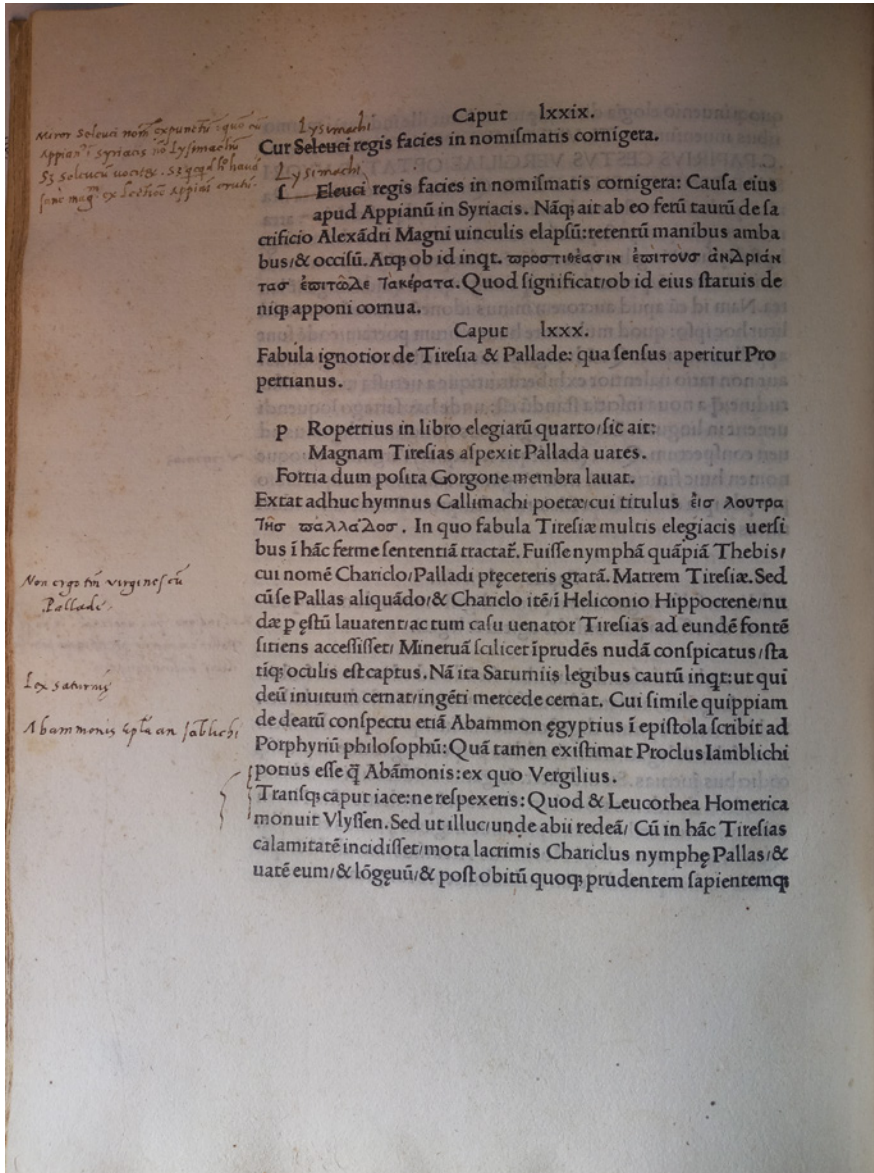 Caput lxxix.
Lysimachi
Cur Seleuci regis facies in nomiſmatis cornigera.
Miror Seleuci nom̄ expunctū
Appian' ī Syriacis nō Lysimachū
Sꝫ Seleucū
Lysimachi
ſ Eleuci regis facies in nomiſmatis cornigera: Cauſa eius
apud Appianū in Syriacis. Nāqꝫ ait ab eo ferū taurū de ſa
crificio Alexādri Magni uinculis elapſū: retentū manibus amba
bus/& occiſū. Atqꝫ ob id inqt. προστιθέασιν ἐπιτοὺσ ἀνΔριάν
τασ ἐπιτῶΔε τακέρατα. Quod ſignificat/ob id eius ſtatuis de
niqꝫ apponi cornua.
Caput lxxx.
Fabula ignotior de Tireſia & Pallade: qua ſenſus aperitur Pro
pertianus.
p Ropertius in libro elegiarū quarto/ſic ait:
Magnam Tireſias aſpexit Pallada uates.
Fortia dum poſita Gorgone membra lauat.
Extat adhuc hymnus Callimachi poetæ/cui titulus ἐισ λουτρα
τῆσ παλλάΔοσ. In quo fabula Tireſiæ multis elegiacis uerſi
bus ī hāc ferme ſententiā tractat̄. Fuiſſe nymphā quāpiā Thebis/
cui nomē Chariclo/Palladi pręceteris gratā. Matrem Tireſiæ. Sed
cū ſe Pallas aliquādo/& Chariclo itē/ī Heliconio Hippocrene/nu
dæ p ęſtū lauarent/ac tum caſu uenator Tireſias ad eundē fontē
ſitiens acceſſiſſet/ Mineruā ſcilicet īprudēs nudā conſpicatus/ſta
tīqꝫ oculis eſt captus. Nā ita Saturniis legibus cautū inqt: ut qui
deū inuitum cernat/ingēti mercede cernat. Cui ſimile quippiam
de dearū conſpectu etiā Abammon ęgyptius ī epiſtola ſcribit ad
Porphyriū philoſophū: Quā tamen exiſtimat Proclus Iamblichi
potius eſſe q̄ Abāmonis: ex quo Vergilius.
Tranſqꝫ caput iace: ne reſpexeris: Quod & Leucothea Homerica
monuit Vlyſſen. Sed ut illuc/unde abii redeā/ Cū in hāc Tireſias
calamitatē incidiſſet/mota lacrimis Chariclus nymphę Pallas/&
uatē eum/& lōgęuū/& poſt obitū quoqꝫ prudentem ſapientemqꝫ
Non ergo tm̄ virgines cū
Pallade.
Lex saturnij
Abammonis ep̄la an Iāblichi